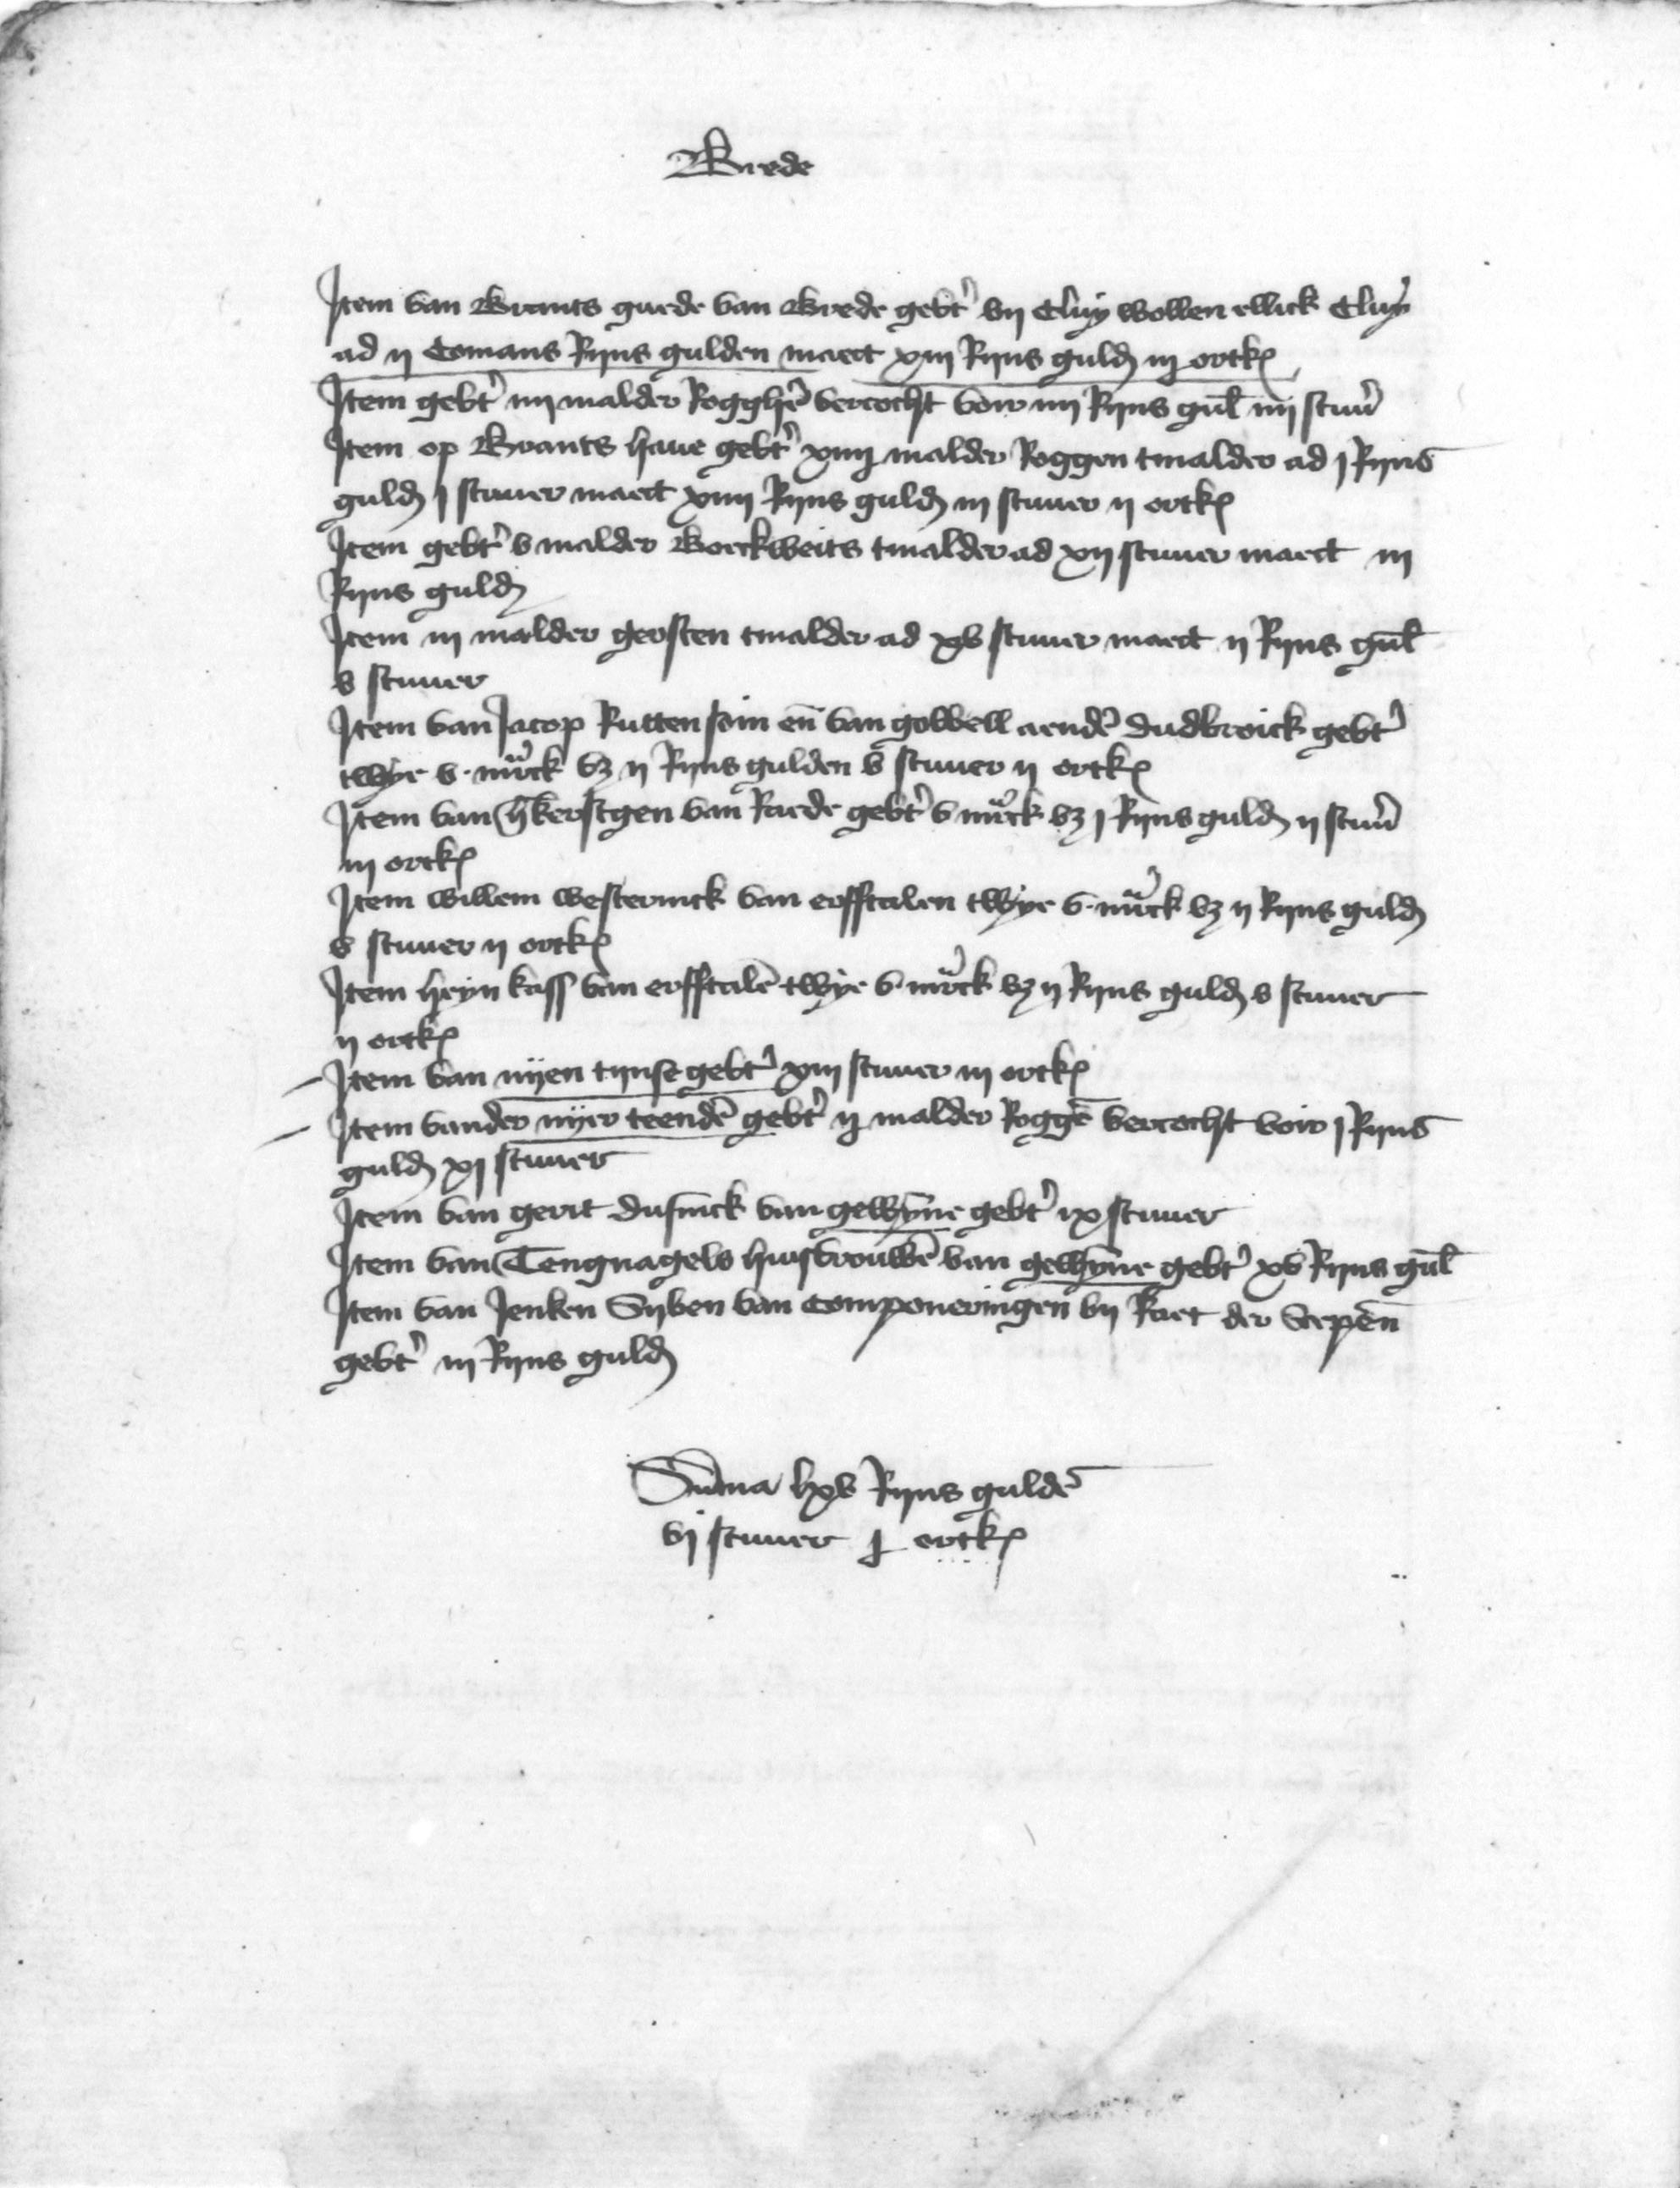 Brede
Item van Brants guede van Brede gebt' vij Cluy wollen ellick Cluy
ad ij Comans Rijns gulden maect xiij Rijns guld iij ortk
Item gebt' iiij malder Rogghē vercocht voir iiij Rijns gul iiij stuv'
Item op Brants haue gebt' xiiij malder Roggen tmalder ad j Rijns
guld j stuuer maect xiiij Rijns guld iij stuuer ij ortk
Item gebt' v malder Boeckweits tmalder ad xij stuuer maect iij
Rijns guld
Item iij malder gersten tmalder ad xv stuuer maect ij Rijns gul
v stuuer
Item van Jacop Rutten soin eñ van gowell aendē dudbroick gebt'
twye v. mrck vz ij Rijns gulden v stuuer ij ortk
Item van kerstgen van Raede gebt' v mrck vz j Rijns guld ij stuv'
iij ortk
Item willem westerinck van erfftalen twye v. mrck vz ij Rijns guld
v stuuer ij ortk
Item heyn kass van erfftalē twye v mrck vz ij Rijns guld v stuuer
ij ortk
Item van nyen tijnse gebt' xiij stuuer iij ortk
Item vander nyer teendē gebt' ij malder Roggē vercocht voir j Rijns
guld xj stuuer
Item van gerit dusinck van gewyñe gebt' ix stuuer
Item van Tengnagels huisvrouwē van gewyñe gebt' xv Rijns gul
Item van Jenken Syben van componeringen bij Raet der Scepen
gebt' iij Rijns guld
Sūma lxv Rijns guldē
vj stuuer j ortk